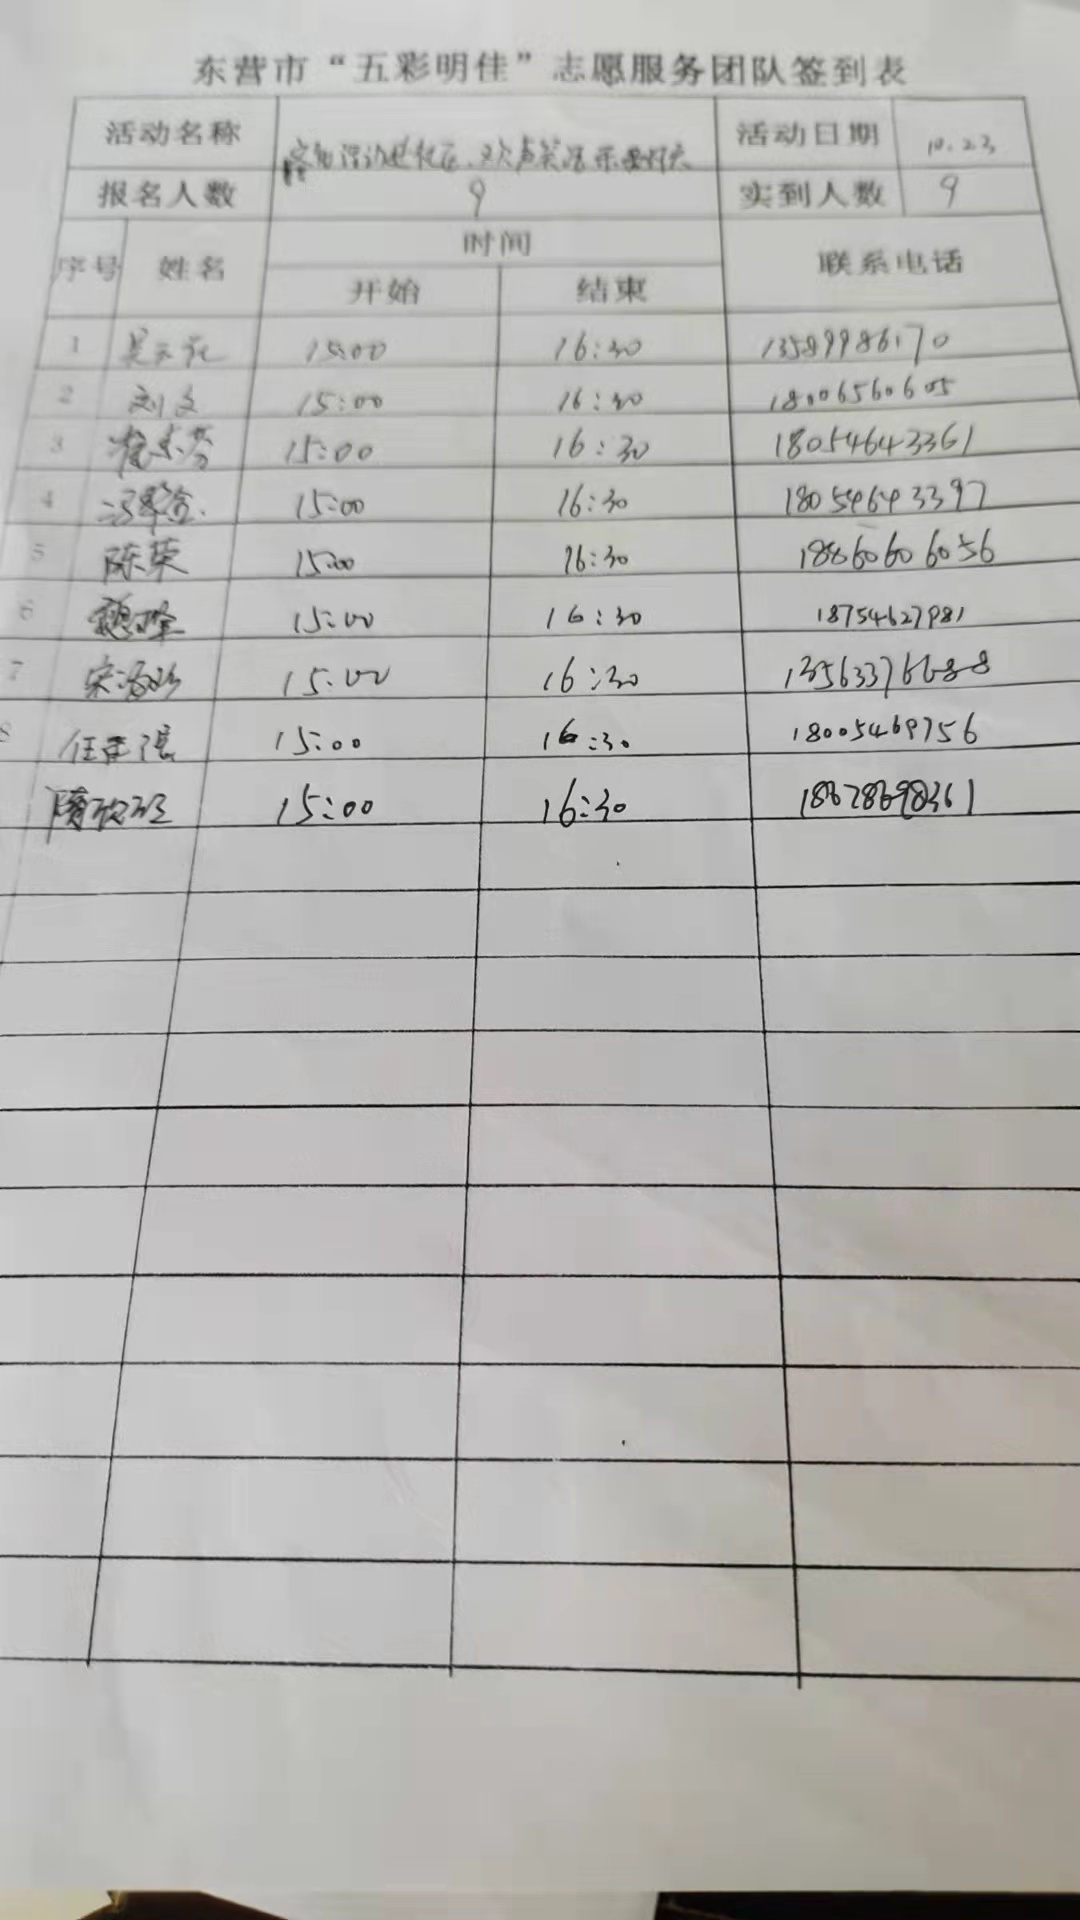 东营市“五彩明佳”志愿服务团队签到表
活动名称 活动进社区、欢声笑语乐 活动日期 10.23
报名人数 9 实到人数 9
序号 姓名 时间 联系电话
开始 结束
1 15:00 16:30 13589986170
2 刘文 15:00 16:30 18006560605
3 15:00 16:30 18054643361
4 15:00 16:30 18054643397
5 陈荣 15:00 16:30 18860606056
6 15:00 16:30 18754627981
7 宋 15:00 16:30 13563376688
8 任 强 15:00 16:30 18005469756
隋 15:00 16:30 18678698361